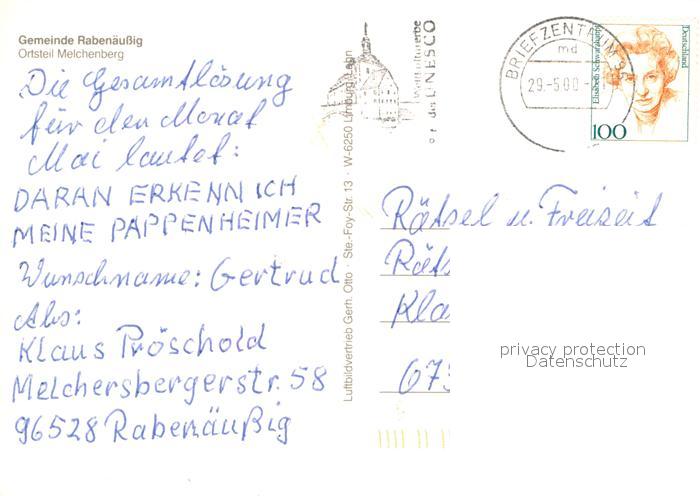 Gemeinde Rabenäußig
Ortsteil Melchenberg
Die Gesamtlösung
für den Monat
Mai lautet:
DARAN ERKENN ICH
MEINE PAPPENHEIMER
Wunschname: Gertrud
Abs:
Klaus Pröschold
Melchersbergerstr. 58
96528 Rabenäußig
Luftbildvertrieb Gerh. Otto · Ste.-Foy-Str. 13 · W-6250 Limburg/Lahn
Weltkulturerbe
der UNESCO
BRIEFZENTRUM 96
md
29.-5.00
Deutschland
Elisabeth Schwarzhaupt
100
Rätsel u. Freizeit
Räts
Kla
67
privacy protection
Datenschutz